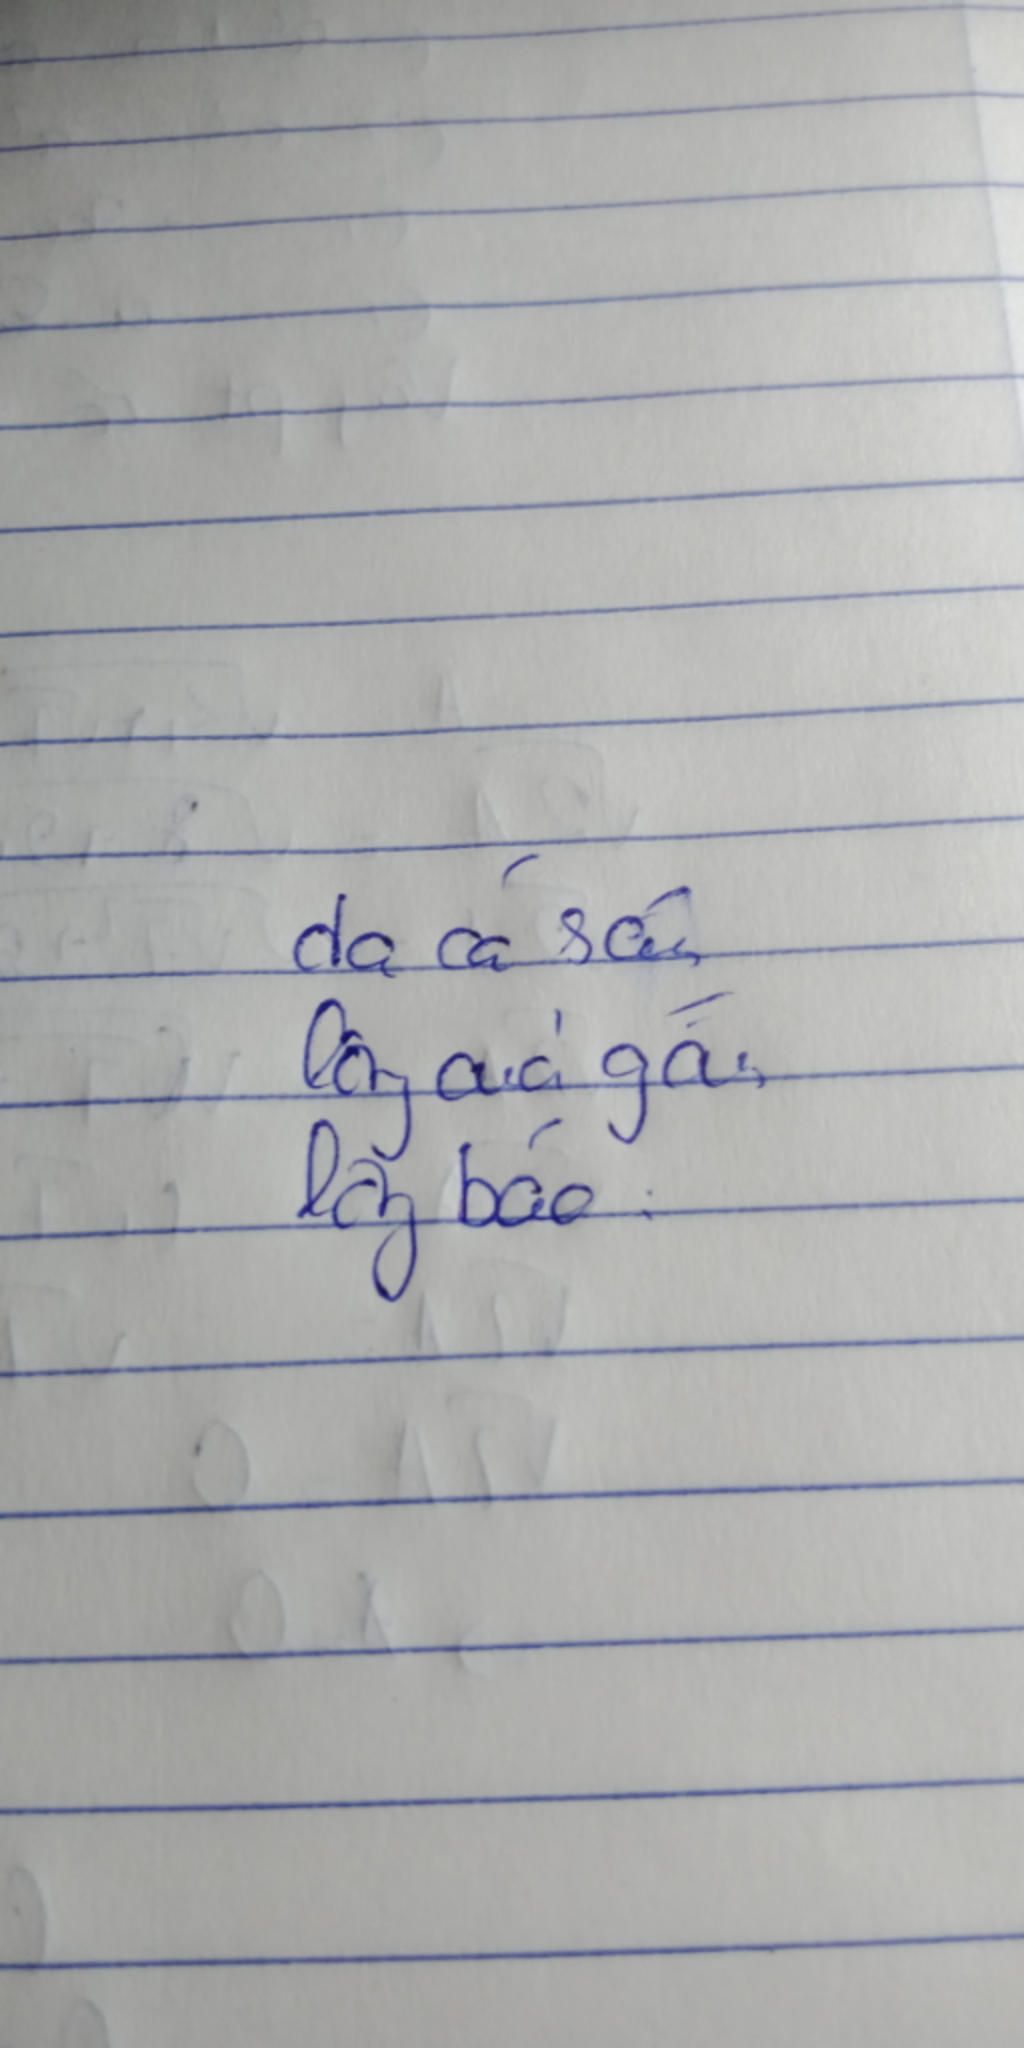 da cá sấu
lông ... gấu
lông báo.